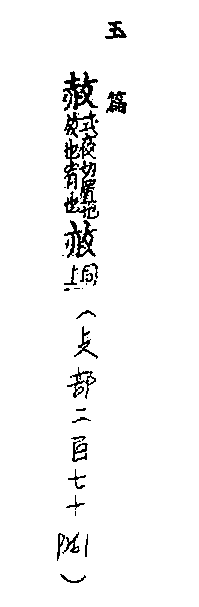 玉篇
赦式夜切置也放也宥也𢼜同上(攴部二百七十
)